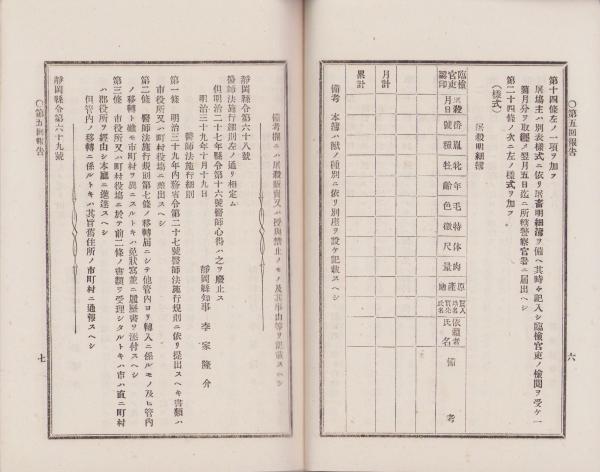 〇第五回報告
第十四條左ノ一項ヲ加フ
屠場主ハ別表樣式ニ依リ屠畜明細簿ヲ備ヘ其時々記入シ臨檢官吏ノ檢閱ヲ受ケ一
箇月分ヲ取纒メ翌月五日迄ニ所轄警察官署ニ屆出ヘシ
第二十四條ノ次ニ左ノ樣式ヲ加フ
(樣式)
屠殺明細簿
臨檢官吏認印
屠殺月日
畜種
牝牡
年齡
毛色
特徵
体尺
肉量
原產地
依賴者氏名
備考
月計
累計
備考 本簿ハ獸ノ種別ニ依リ別座ヲ設ケ記載スヘシ
六
〇第五回報告
備考欄ニハ屠殺販賣又ハ授與禁止ノモノ及其事由等ヲ記載スヘシ
靜岡縣令第六十八號
醫師法施行細則左ノ通リ相定ム
但明治二十七年縣令第十六號醫師心得ハ之ヲ廢止ス
明治三十九年十月十九日
靜岡縣知事 李家隆介
醫師法施行細則
第一條 明治三十九年內務省令第二十七號醫師法施行規則ニ依リ提出スヘキ書類ハ
市役所又ハ町村役塲ニ差出スヘシ
第二條 醫師法施行規則第七條ノ移轉屆ニシテ他管內ヨリ轉入ニ係ルモノ及ヒ管內
ノ移轉ト雖モ市町村ヲ異ニスルトキハ免狀寫並ニ履歷書ヲ添付スヘシ
第三條 市役所又ハ町村役塲ニ於テ前二條ノ書類ヲ受理シタルトキハ市ハ直ニ町村
ハ郡役所ヲ經由シ本廳ニ進達スヘシ
但管內ノ移轉ニ係ルトキハ其旨舊住所ノ市町村ニ通報スヘシ
靜岡縣令第六十九號
七